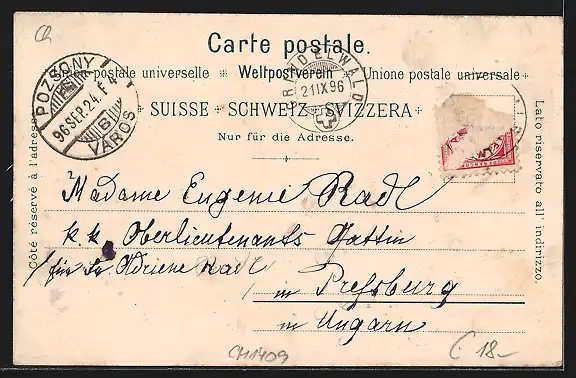 Ch
Carte postale.
Union postale universelle ✻ Weltpostverein ✻ Unione postale universale
SUISSE ✦ SCHWEIZ ✦ SVIZZERA
Nur für die Adresse.
POZSONY
96 SEP. 24. F 4
B
VÁROS
GRINDELWALD
21 IX 96
Côté réservé à l'adresse.
Lato riservato all' indirizzo.
Madame Eugenie Radl
k. k. Oberlieutenants Gattin
/für Adriene Radl
in Pressburg
in Ungarn
CH1409
C 18-